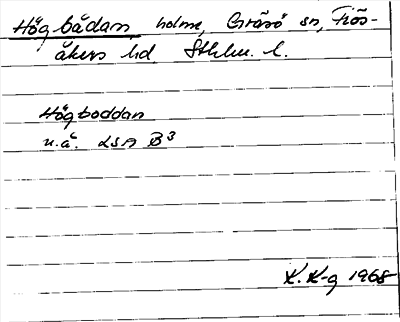 Högbådan, holme, Gräsö sn, Frös-
åkers hd Sthlm. l.
Högboddan
u.å. LSA B³
K. K-g 1968